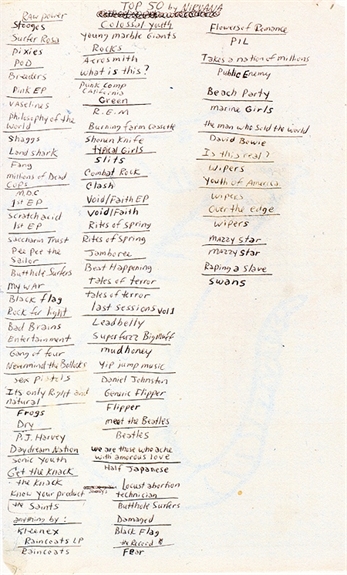 TOP 50 by NIRVANA
Raw power
Stooges
Surfer Rosa
Pixies
Pod
Breeders
Pink EP
vaselines
Philosophy of the
World
Shaggs
Land shark
Fang
millions of Dead
Cops
M.D.C
1st EP
Scratch acid
1st EP
Saccharin Trust
Pee pee the
Sailor
Butthole Surfers
My war
Black flag
Rock for light
Bad Brains
Entertainment
Gang of four
Nevermind the Bollocks
sex pistols
Its only Right and
natural
Frogs
Dry
P.J. Harvey
Daydream Nation
Sonic Youth
Get the Knack
the Knack
Know your product
the Saints
anything by:
Kleenex
Raincoats LP
Raincoats
Colossal youth
young marble Giants
Rocks
Aerosmith
what is this?
Punk comp
California
Green
R.E.M
Burning farm cassette
Shonen Knife
typical Girls
Slits
Combat Rock
Clash
Void/Faith EP
Void/Faith
Rites of spring
Rites of Spring
Jamboree
Beat Happening
Tales of terror
tales of terror
last sessions vol 1
Leadbelly
Superfuzz Bigmuff
mudhoney
Yip jump music
Daniel Johnston
Generic Flipper
Flipper
meet the Beatles
Beatles
we are those who ache
with amorous love
Half Japanese
Locust abortion
technician
Butthole Surfers
Damaged
Black Flag
the Record
Fear
Flowers of Romance
PIL
Takes a nation of millions
Public Enemy
Beach Party
marine Girls
the man who sold the world
David Bowie
Is this real?
Wipers
Youth of America
wipers
Over the edge
wipers
mazzy star
mazzy star
Raping a slave
swans